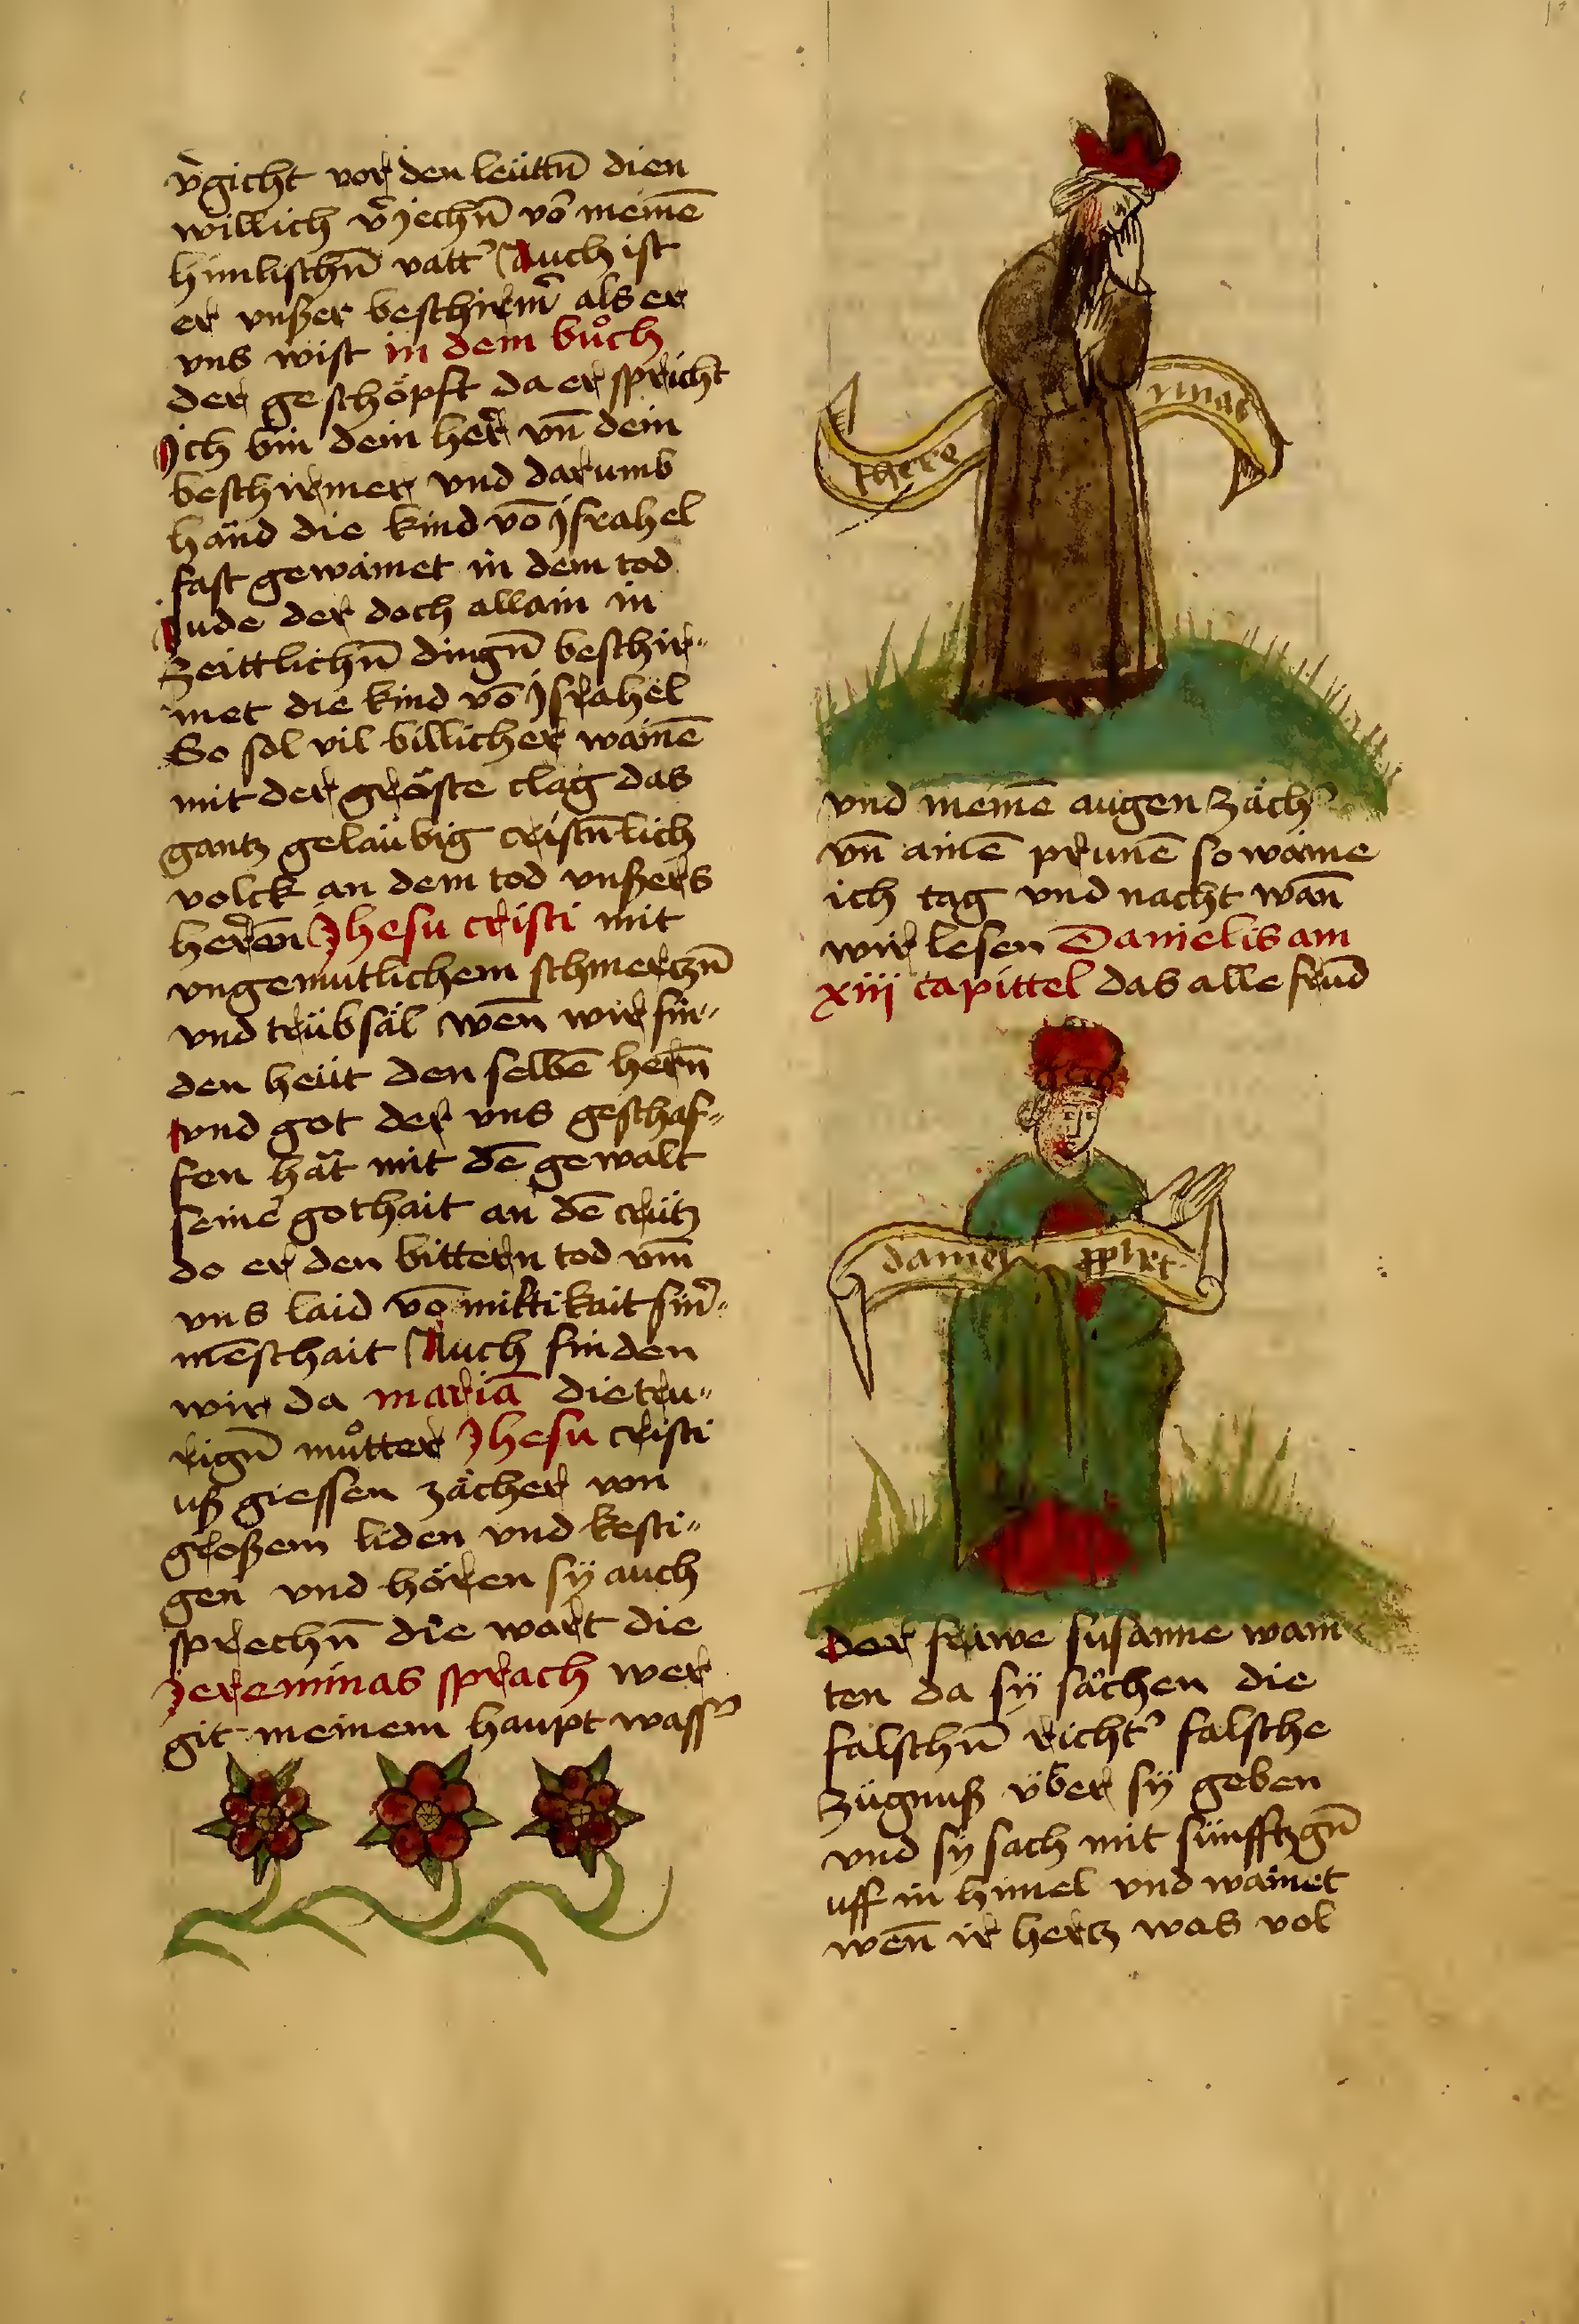 v̄gicht vor den leüttn̄ dien
willich v̄jechn̄ vō meinē
himlischn̄ vatt' Auch ist
er vnßer beschirm' als er
vns wist in dem bůch
der geschöpft da er spricht
Ich bin dein her̄ vn̄ dein
beschirmer vnd darumb
händ die kind vō jsrahel
fast gewainet in dem tod
Jude der doch allain in
zeittlichn̄ dingn̄ beschir„
met die kind vō jsrahel
So sol vil billicher wainē
mit der gröste clag das
gantz geläubig cristn̄lich
volck an dem tod vnßers
heren̄ Jhesu cristi mit
vngemütlichem schmertzn̄
vnd trübsäl wen̄ wir fin„
den heüt den selbē hern̄
vnd got der vns geschaf„
fen hät mit dē gewalt
seine' gothait an dē crütz
do er den bittern tod vm̄
vns laid vō miltikait sin'„
mēschait Auch finden
wir da mariā die tru„
rign̄ můtter Jhesu cristi
uß giessen zächer von
großem liden vnd kesti„
gen vnd hören sÿ auch
sprechn̄ die wort die
Jereminas sprach wer
git meinem haupt wass'
there minas
vnd meinē augen zäch'
vn̄ ainē prunē so waine
ich tag vnd nacht wan̄
wir lesen Danielis am
xiij capittel das alle frūd
daniel pphet
Der frawe susanne wain
ten da sÿ sächen die
falschn̄ richt' falsche
zügnuß über sÿ geben
vnd sÿ sach mit sünfftzgn̄
uff in himel vnd wainet
wen̄ ir hertz was vol